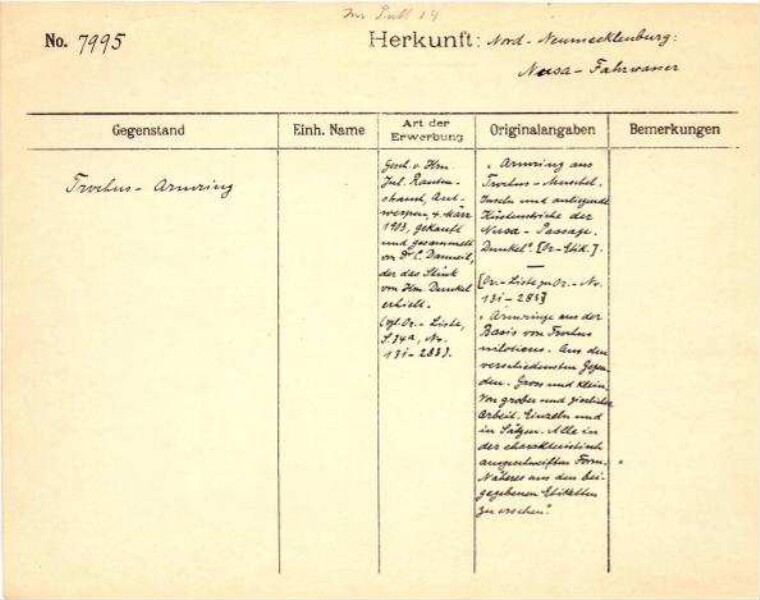 No. 7995
Herkunft: Nord-Neumecklenburg:
Nusa-Fahrwasser
Gegenstand
Einh. Name
Art der
Erwerbung
Originalangaben
Bemerkungen
Trochus-Armring
Gesch. v. Hrn.
Jul. Rauten-
strauch, Ant-
werpen, 4. März
1913, gekauft
und gesammelt
von Dr. C. Danneil,
der das Stück
von Hrn. Dunkel
erhielt.
(vgl. Or.-Liste,
S. 34a, No.
131-283).
„Armring aus
Trochus-Muschel.
Inseln und anliegende
Küstenstriche der
Nusa-Passage.
Dunkel". [Or-Etik.].
[Or.-Liste zu Or.-No.
131-283]
„Armringe aus der
Basis von Trochus
niloticus. Aus den
verschiedensten Gegen-
den. Gross und klein.
Von grober und zierlicher
Arbeit. Einzeln und
in Sätzen. Alle in
der charakteristisch
ausgeschweiften Form.
Näheres aus den bei-
gegebenen Etiketten
zu ersehen."